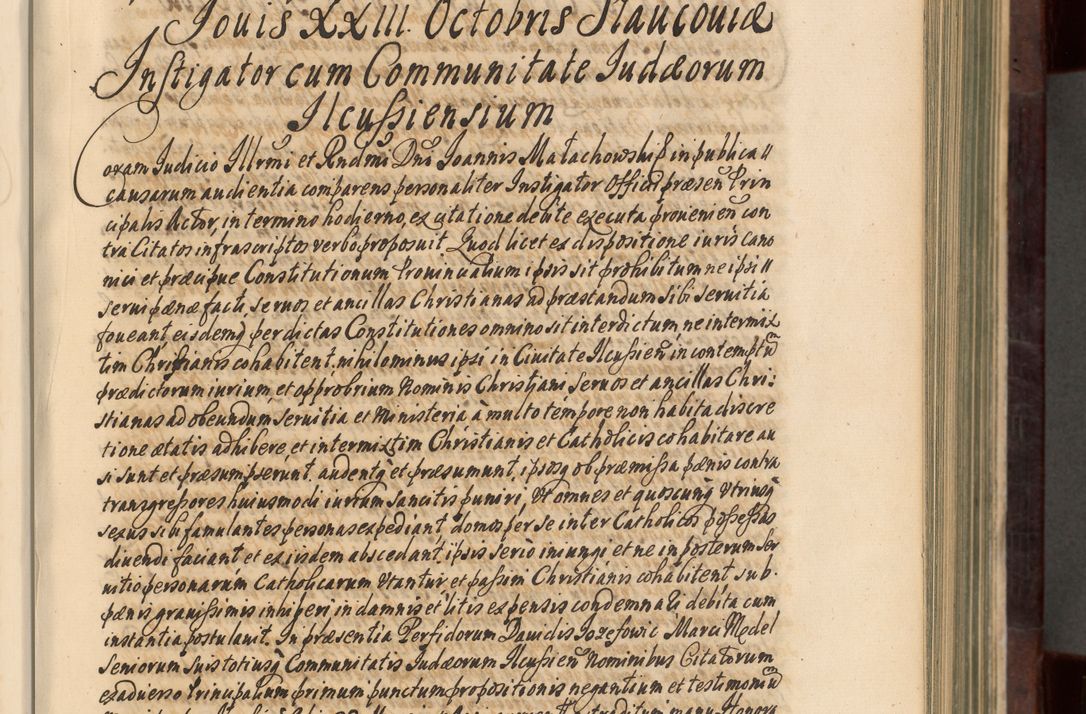 Jouis XXIII Octobris Slaucouiæ
Instigator cum Communitate Judæorum
Ilcussiensium
Coram Judicio Illrmi et Rndmi Dni Joannis Małachowski in publica
causarum audientia comparens personaliter Instigator Officij præsen Prin
cipalis Actor, in termino hodierno, ex citatione debite executa proueнien con
tra Citatos infrascriptos verbo proposuit. Quod licet ex dispositione iuris cano
nici et præcipue Constitutionum Prouincialium ipsis sit prohibitum ne ipsi
serui pænæ facti, seruos et ancillas Christianas ad præstandum sibi seruitia
foueant eisdemq per dictas Constitutiones omnino sit interdictum ne intermix
tim Christianis cohabitent. nihilominus ipsi in Ciuitate Ilcussien in contemptum
prædictorum iurium et opprobrium Nominis Christiani Seruos et ancillas Chri:
stianas ad obeundum Seruitia et Ministeria à multo tempore non habita discre
tione ætatis adhibere, et intermixtim Christianis et Catholicis cohabitare au
si sunt et præsumpserunt. audentq et præsumunt, ipsosq ob præmissa pænis contra
transgressores huiusmodi iurium sancitis puniri, Vt omnes et quoscunq Vtriusq
sexus sibi famulantes personas expediant, domos per se inter Catholicos possessas
diuendi faciant et ex iisdem abscedant, ipsis serio iniungi et ne in posterum ser
uitio personarum Catholicarum Vtantur et passim Christianis cohabitent sub
pænis grauissimis inhiberi in damnis et litis expensis condemnari debita cum
instantia postulauit. In præsentia Perfidorum Dauidis Jozefowic Marci Medel
Seniorum suis totiusq Communitatis Judæorum Ilcussien Nominibus Citatorum
ex aduerso Principalium primum punctum propositionis negantium et testimonium